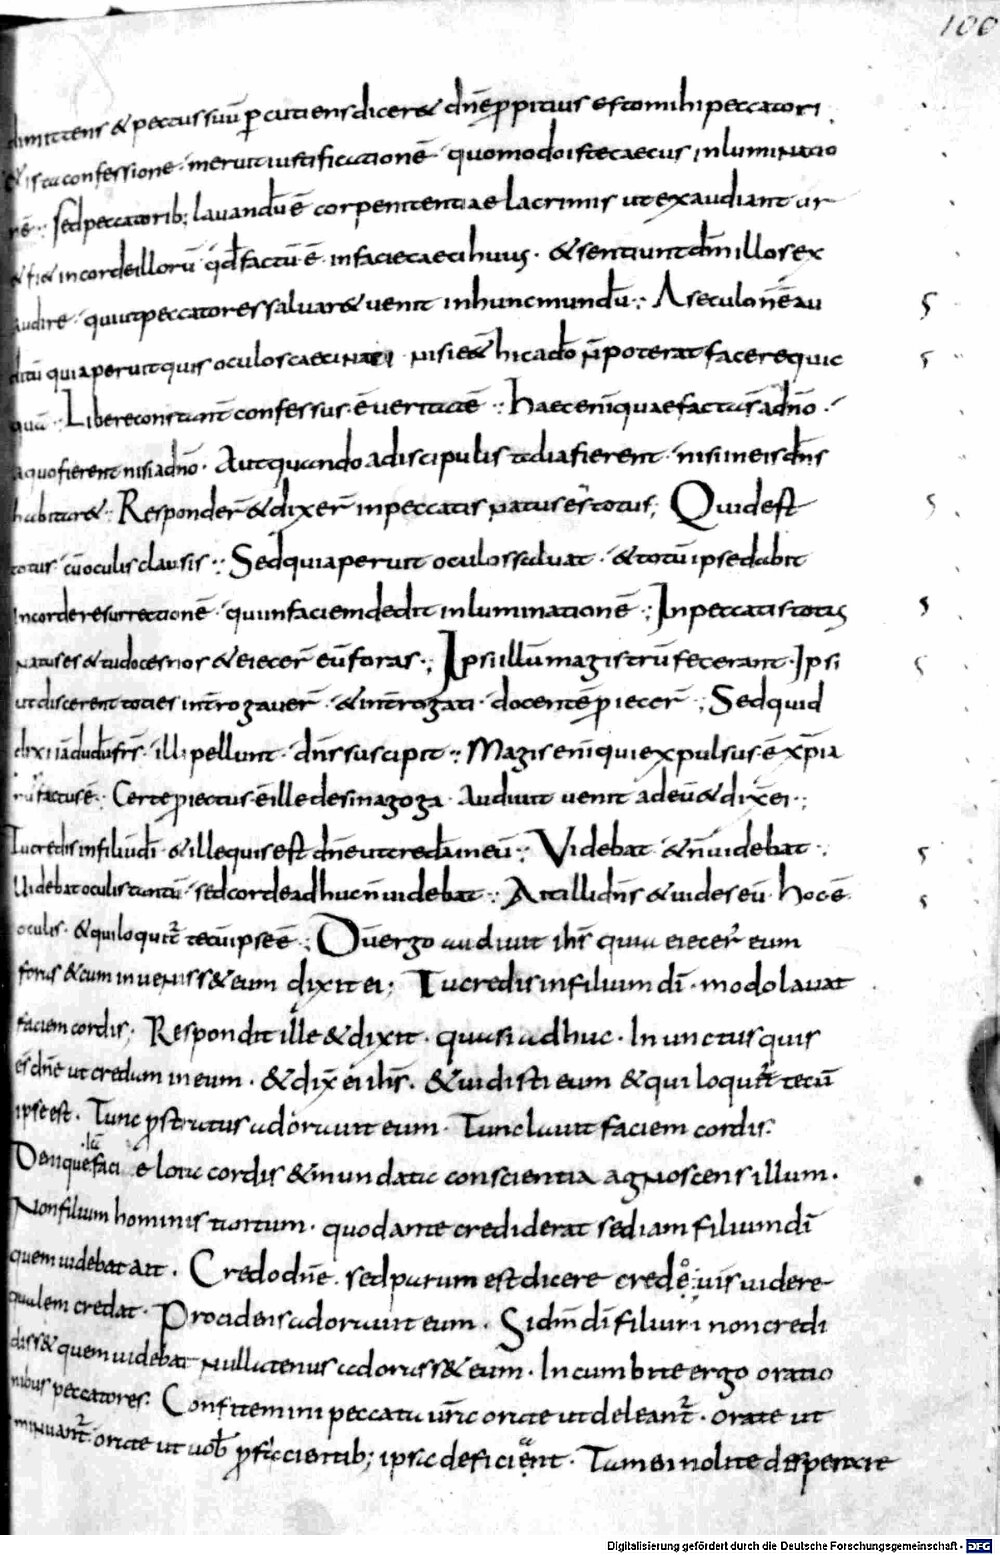 100
dimittens & pectus suū ꝑcutiens dicer& dnē ꝓpitius esto mihi peccatori.
& ista confessione · meruit iustificationē · quomodo iste caecus inluminatio
nē :· sed peccatorib; lauandū ē cor penitentiae lacrimis ut exaudiantur
& fi& in corde illorū qd̄ factū ē · in facie caeci huius · & sentiunt dm̄ illos ex
audire · qui ut peccatores saluar& uenit in hunc mundū :· A seculo nē au
ditū quia peruit quis oculos caeci nati · nisi e& hic a do n̄ poterat facere quic
quā :· Libere constant̄ confessus · ē ueritatē :· Haec eni quae facta s̄ a dn̄o ·
a quo fierent nisi a dn̄o · Aut quando a discipulis talia fierent · nisi in eis dn̄s
habitar& :· Responder̄ & dixer̄ in peccatis natus es totus; Quid est
totus · cū oculis clausis :· Sed qui aperuit oculos saluat · & totū ipse dabit
in corde resurrectionē · qui in faciem dedit inluminationē :· In peccatis totus
natus es & tu doces nos & eiecer̄ eū foras :· Ipsi illū magistrū fecerant · Ipsi
ut discerent toties intrōgauer̄ · & intrōgati · docentē ꝓiecer̄ :; Sed quid
dixi iādudū frs̄ · illi pellunt · dn̄s suscipit :· Magis eni qui expulsus · ē xp̄ia
nus factus ē :· Certe ꝓiectus · ē ille de sinagoga · Audiuit uenit ad eū & dix̄ ei :·
Tu credis in filiū dī · & ille quis est dn̄e ut credā in eū :· Videbat · & n̄ uidebat :·
Uidebat oculis tantū · sed corde adhuc n̄ uidebat :· Ait illi dn̄s & uides eū · hoc ē
oculis · & qui loquit̄ tecū ipse ē :· Dū ergo audiuit ihs̄ quia eiecer̄ eum
foras & cum inueniss& eum dixit ei; Tu credis in filium dī · modo lauat
faciem cordis; Respondit ille & dixit · quasi adhuc · Inunctus quis
es dn̄e ut credam in eum · & dix̄ ei ihs̄ · & uidisti eum & qui loquit̄ tecū
ipse est · Tunc ꝓstratus adorauit eum · Tunc lauit faciem cordis:
Deniquę faci ē lota cordis & mundata conscientia agnoscens illum ·
Non filium hominis tantum · quod ante crediderat sed iam filium dī
quem uidebat ait · Credo dn̄e · sed parum est dicere credo :· uis uidere
qualem credat · Procidens adorauit eum · Si dm̄ dī filium non credi
diss& quem uidebat nullatenus adorass& eum · Incumbite ergo oratio
nibus peccatores · Confitemini peccata ur̄a orate ut deleant̄ · orate ut
minuant̄ · orate ut uob̄ ꝓficientib; ipsa deficient · Tamen nolite desperate
Digitalisierung gefördert durch die Deutsche Forschungsgemeinschaft · DFG